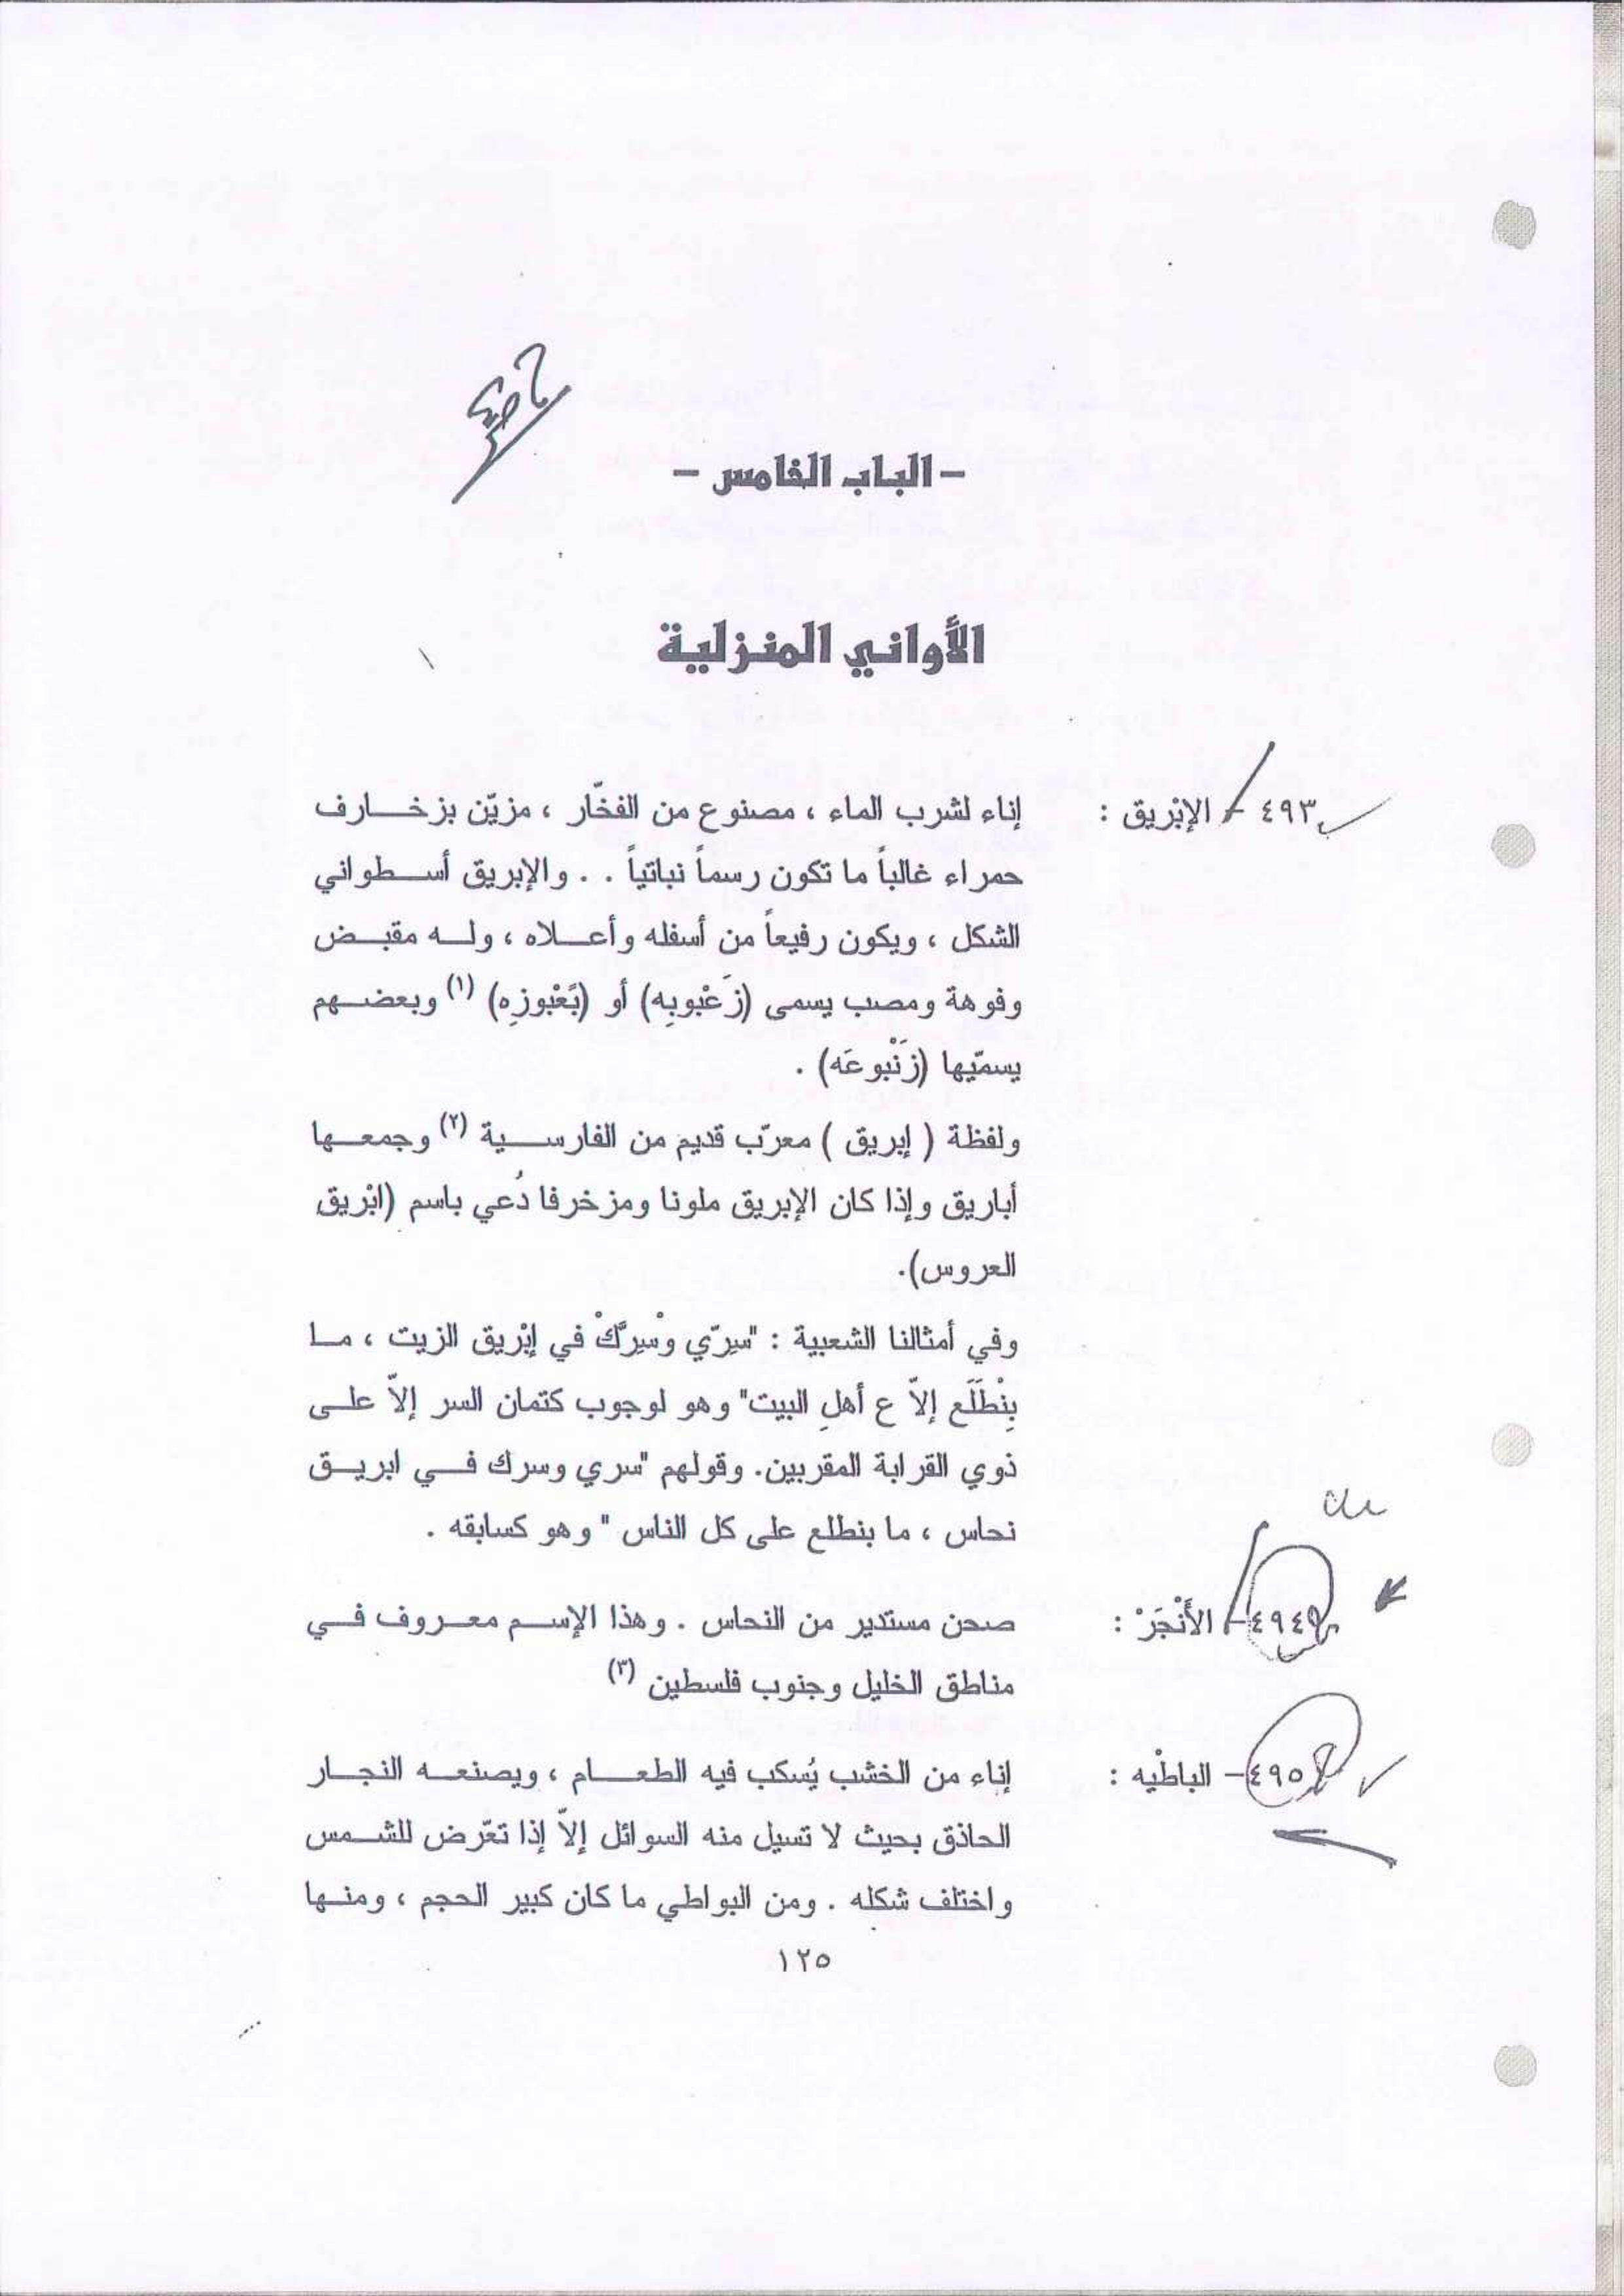 - الباب الخامس -
الأواني المنزلية
٤٩٣ - الإبْريق : إناء لشرب الماء ، مصنوع من الفخّار ، مزيّن بزخارف
حمراء غالباً ما تكون رسماً نباتياً . . والإبريق أسطواني
الشكل ، ويكون رفيعاً من أسفله وأعلاه ، وله مقبض
وفوهة ومصب يسمى (زَعْبوبِه) أو (بَعْبوزِه) (١) وبعضهم
يسمّيها (زَنْبوعَه) .
ولفظة ( إبريق ) معرّب قديم من الفارسية (٢) وجمعها
أباريق وإذا كان الإبريق ملونا ومزخرفا دُعي باسم (ابْريق
العروس).
وفي أمثالنا الشعبية : "سِرّي وْسِرَّكْ في إبْريق الزيت ، ما
بِنْطَلَع إلاّ ع أهلِ البيت" وهو لوجوب كتمان السر إلاّ على
ذوي القرابة المقربين. وقولهم "سري وسرك في ابريق
نحاس ، ما بنطلع على كل الناس " وهو كسابقه .
٤٩٤ - الأَنْجَرْ : صحن مستدير من النحاس . وهذا الإسم معروف في
مناطق الخليل وجنوب فلسطين (٣)
٤٩٥ - الباطْيه : إناء من الخشب يُسكب فيه الطعام ، ويصنعه النجار
الحاذق بحيث لا تسيل منه السوائل إلاّ إذا تعّرض للشمس
واختلف شكله . ومن البواطي ما كان كبير الحجم ، ومنها
١٢٥